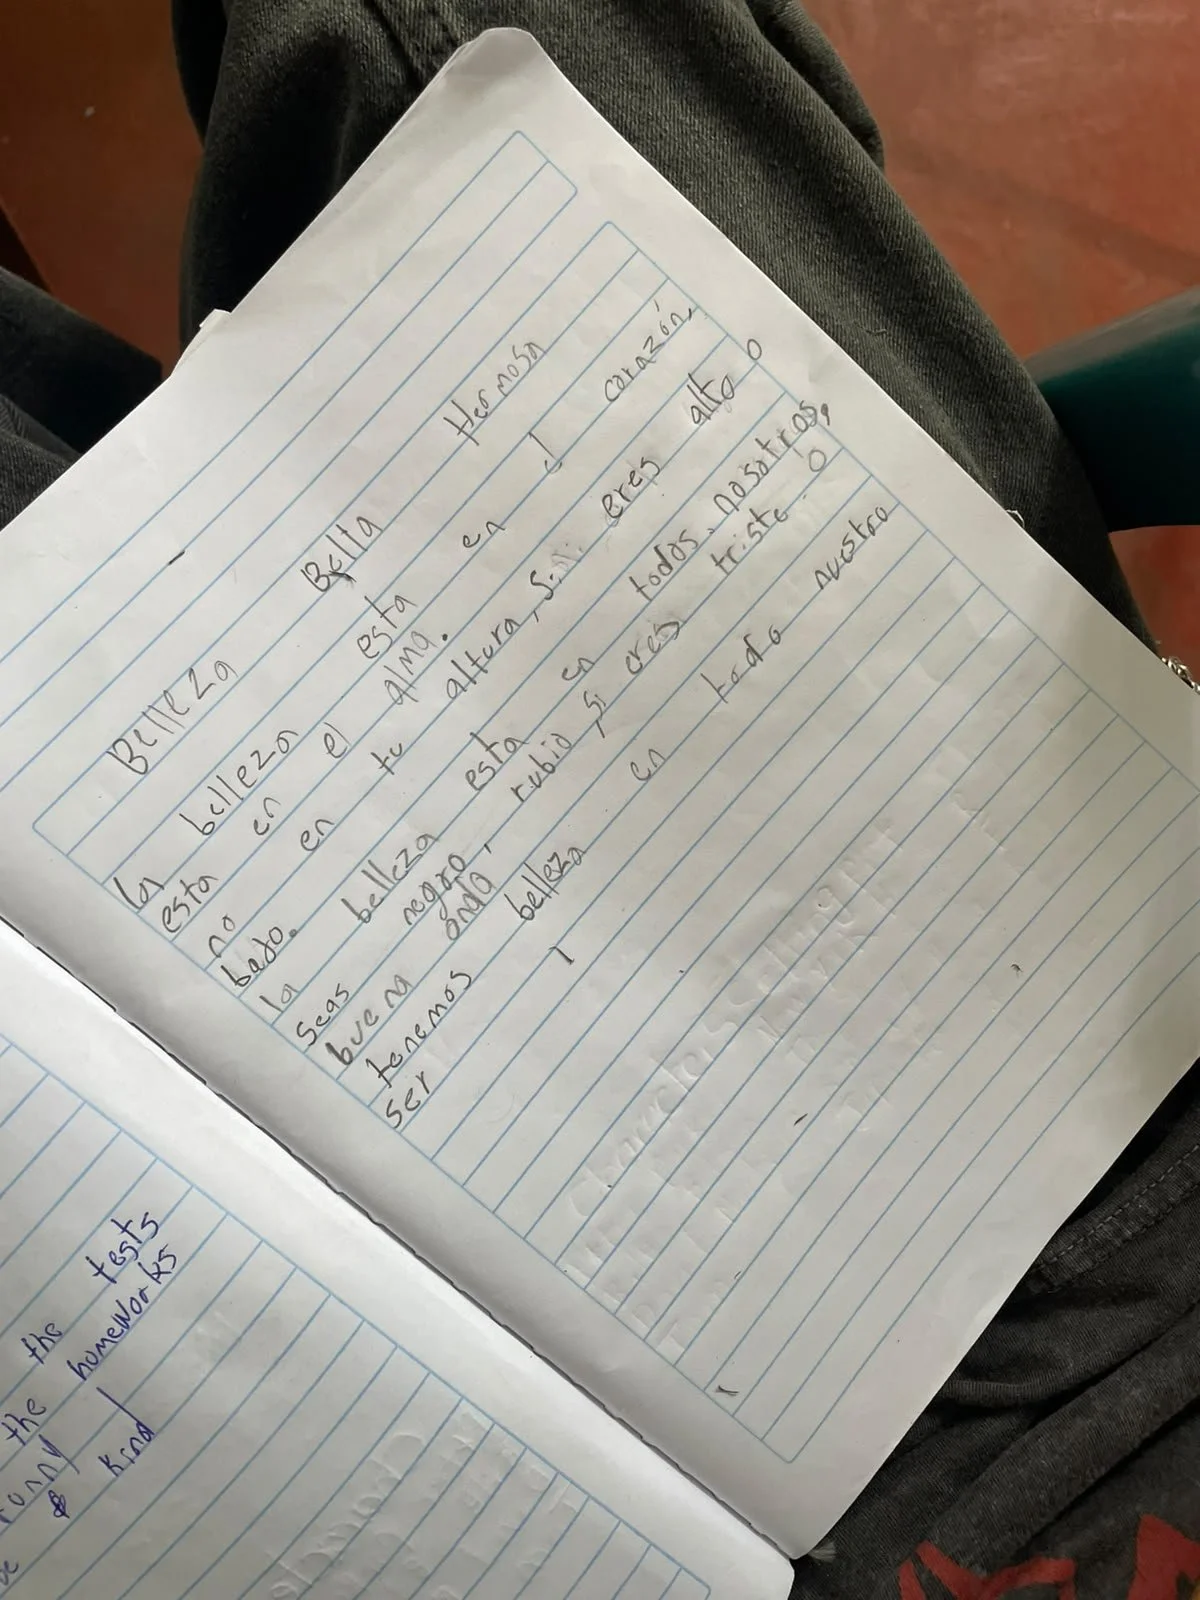 Belleza Bella Hermosa
la belleza esta en el corazón,
esta en el alma.
no en tu altura, si eres alto o
bajo.
la belleza esta en todos nosotros,
seas negro, rubio, si eres triste o
buena onda
tenemos belleza en todo nuestro
ser
the tests
the homeworks
funny
& kind